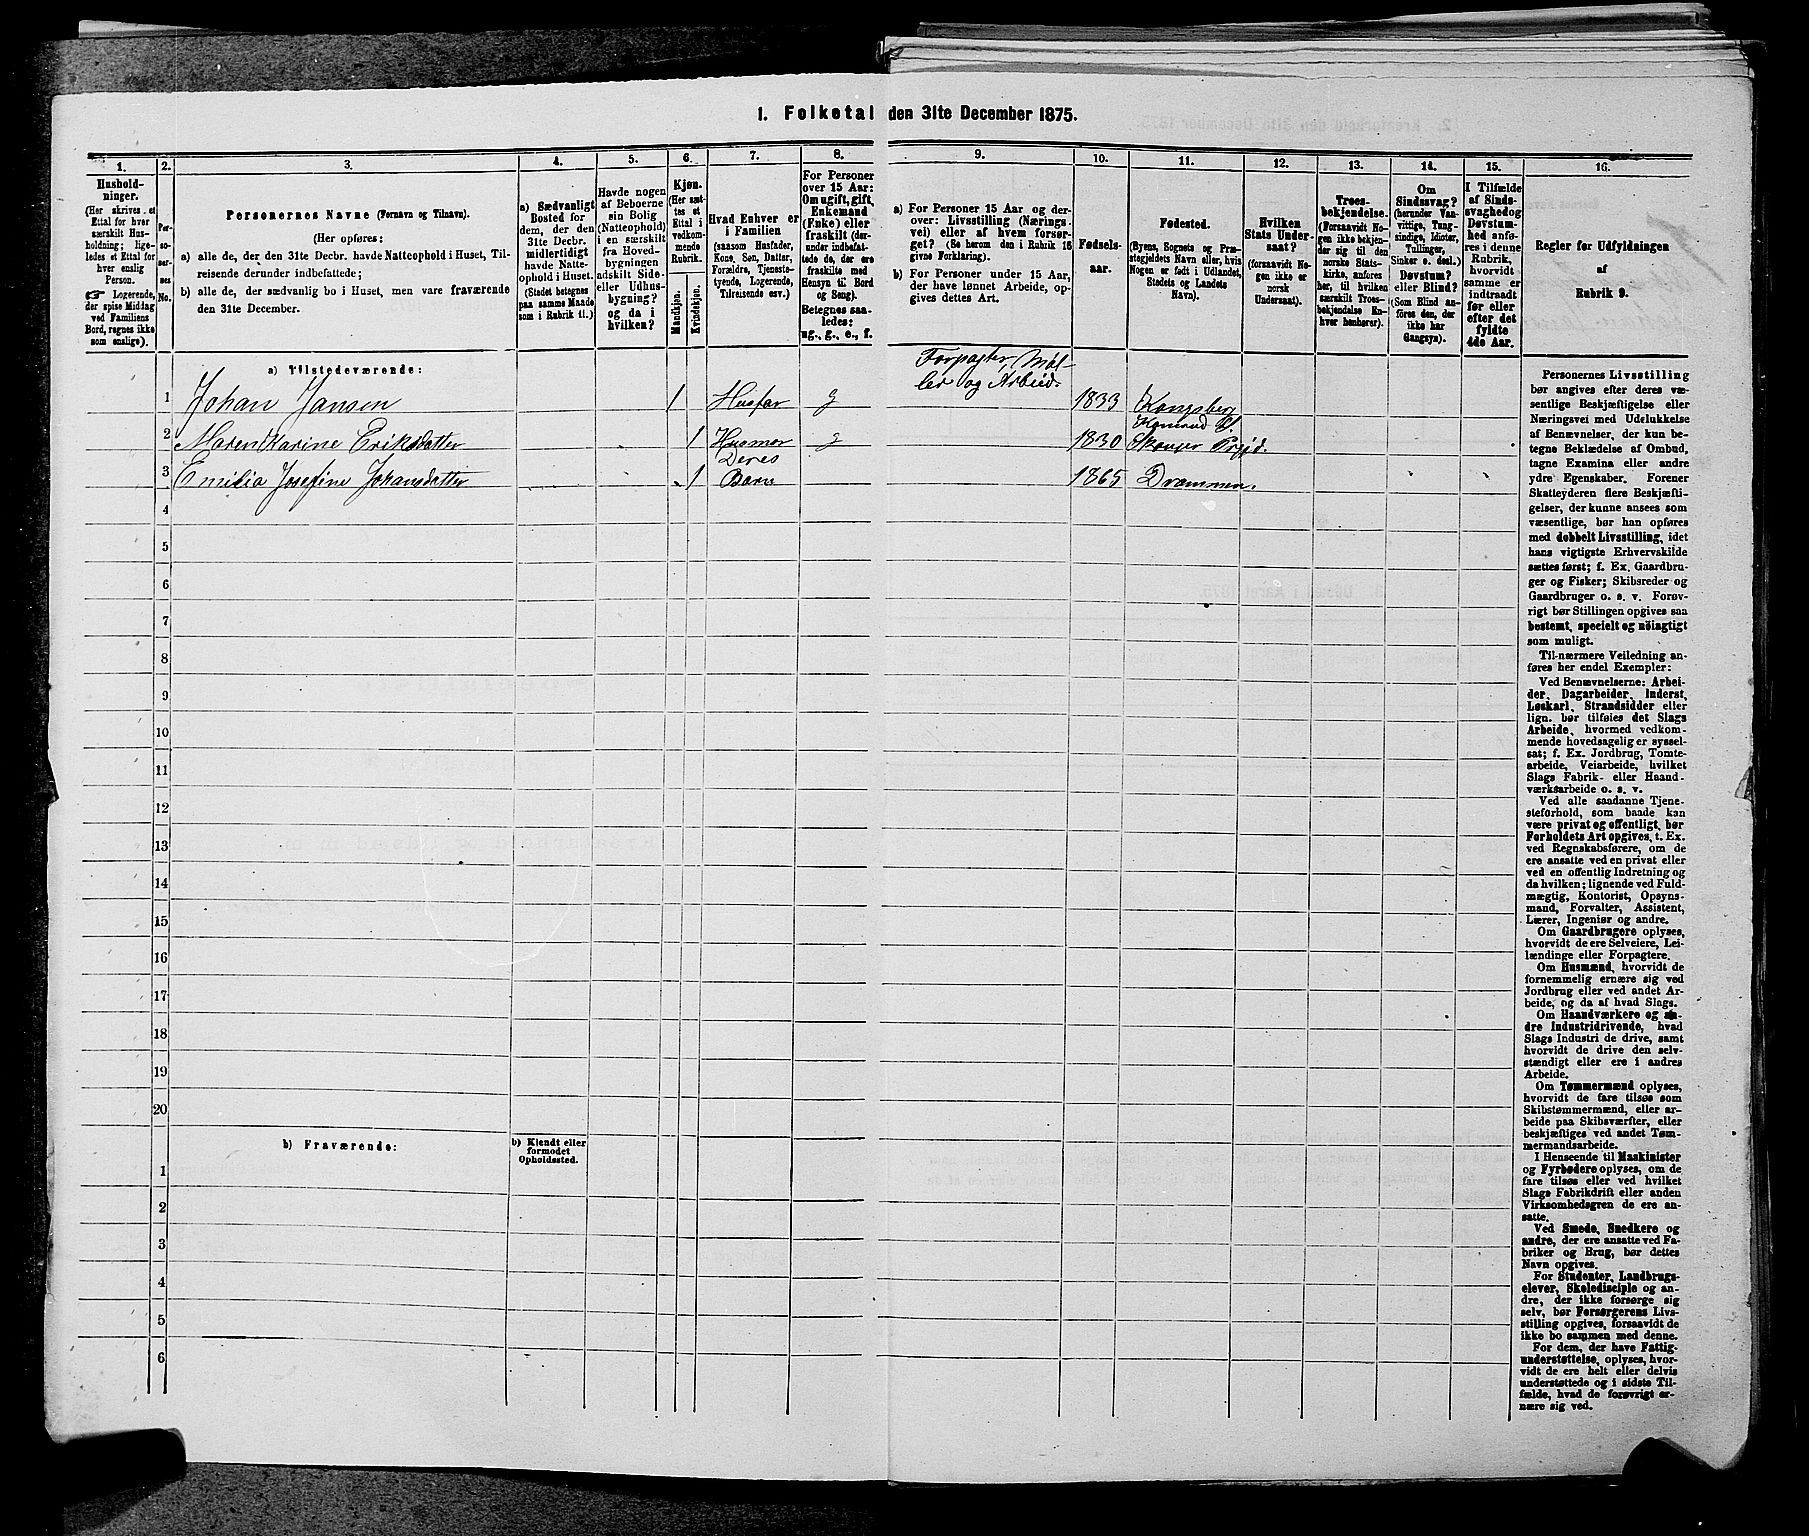 1. Folketal den 31te December 1875.
1.
2.
3.
4.
5.
6.
7.
8.
9.
10.
11.
12.
13.
14.
15.
16.
Hushold-
ninger.
(Her skrives et
Ettal for hver
særskilt Hus-
holdning; lige-
ledes et Ettal for
hver enslig
Person.
☞ Logerende,
der spise Middag
ved Familiens
Bord, regnes ikke
som enslige).
Per-
so-
ner-
nes
No.
Personernes Navne (Fornavn og Tilnavn).
(Her opføres:
a) alle de, der den 31te Decbr. havde Natteophold i Huset, Til-
reisende derunder indbefattede;
b) alle de, der sædvanlig bo i Huset, men vare fraværende
den 31te December.
a) Sædvanligt
Bosted for
dem, der den
31te Decbr.
midlertidigt
havde Natte-
ophold i Huset.
(Stedet betegnes
paa samme Maade
som i Rubrik 11.)
Havde nogen
af Beboerne
sin Bolig
(Natteophold)
i en særskilt
fra Hoved-
bygningen
adskilt Side-
eller Udhus-
bygning?
og da i
hvilken?
Kjøn.
(Her sæt-
tes et
Ettal i
vedkom-
mende
Rubrik.
Mandkjøn.
Kvindekjøn.
Hvad Enhver er
i Familien
(saasom Husfader,
Kone, Søn, Datter,
Forældre, Tjeneste-
tyende, Logerende,
Tilreisende osv.)
For Personer
over 15 Aar:
Om ugift, gift,
Enkemand
(Enke) eller
fraskilt (der-
under indbefat-
tede de, der ere
fraskilte med
Hensyn til Bord
og Seng).
Betegnes saa-
ledes:
ug., g., e., f.
a) For Personer 15 Aar og der-
over: Livsstilling (Nærings-
vei) eller af hvem forsør-
get? (Se herom den i Rubrik 16
givne Forklaring).
b) For Personer under 15 Aar,
der have lønnet Arbeide, op-
gives dettes Art.
Fødsels-
aar.
Fødested.
(Byens, Sognets og Præ-
stegjeldets Navn eller, hvis
Nogen er født i Udlandet,
Stedets og Landets
Navn).
Hvilken
Stats Under-
saat?
(forsaavidt No-
gen ikke er
norsk
Undersaat).
Troes-
bekjendelse.
(Forsaavidt No-
gen ikke bekjen-
der sig til den
norske Stats-
kirke, anføres
her, til hvilken
særskilt Troes-
bekjendelse En-
hver henhører).
Om
Sindssvag?
(herunder Van-
vittige, Tung-
sindige, Idioter,
Tullinger,
Sinker o. desl.)
Døvstum?
eller Blind?
(Som Blind an-
føres den, der
ikke har
Gangsyn).
I Tilfælde
af Sinds-
svaghed og
Døvstum-
hed anfø-
res i denne
Rubrik,
hvorvidt
samme er
indtraadt
før eller
efter det
fyldte
4de Aar.
Regler for Udfyldningen
af
Rubrik 9.
a) Tilstedeværende:
Forpagter, Møl-
ler og Arbeid.
1 Johan Jansen 1 Husfar g 1833 Kongsberg
2 Maren Karine Eriksdatter 1 Husmor g 1830 Skouger Prgjd.
Deres
3 Emilia Josefine Johansdatter 1 Barn 1865 Drammen.
4
5
6
7
8
9
10
11
12
13
14
15
16
17
18
19
20
b) Fraværende:
b) Kjendt eller
formodet
Opholdssted.
1
2
3
4
5
6
Personernes Livsstilling
bør angives efter deres væ-
sentlige Beskjæftigelse eller
Næringsvei med Udelukkelse
af Benævnelser, der kun be-
tegne Beklædelse af Ombud,
tagne Examina eller andre
ydre Egenskaber. Forener
Skatteyderen flere Beskjæfti-
gelser, der kunne ansees som
væsentlige, bør han opføres
med dobbelt Livsstilling, idet
hans vigtigste Erhvervskilde
sættes først; f. Ex. Gaardbru-
ger og Fisker; Skibsreder og
Gaardbruger o. s. v. Forøv-
rigt bør Stillingen opgives saa
bestemt, specielt og nøiagtigt
som muligt.
Til nærmere Veiledning an-
føres her endel Exempler:
Ved Benævnelserne: Arbei-
der, Dagarbeider, Inderst,
Løskarl, Strandsidder eller
lign. bør tilføies det Slags
Arbeide, hvormed vedkom-
mende hovedsagelig er syssel-
sat; f. Ex. Jordbrug, Tomte-
arbeide, Veiarbeide, hvilket
Slags Fabrik- eller Haand-
værksarbeide o. s. v.
Ved alle saadanne Tjene-
steforhold, som baade kan
være privat og offentligt, bør
Forholdets Art opgives, t. Ex.
ved Regnskabsførere, om de
ere ansatte ved en privat eller
ved en offentlig Indretning og
da hvilken; lignende ved Fuld-
mægtig, Kontorist, Opsyns-
mand, Forvalter, Assistent,
Lærer, Ingeniør og andre.
Om Gaardbrugere oplyses,
hvorvidt de ere Selveiere, Lei-
lændinge eller Forpagtere.
Om Husmænd, hvorvidt de
fornemmelig ernære sig ved
Jordbrug eller ved andet Ar-
beide, og da af hvad Slags.
Om Haandværkere og an-
dre Industridrivende, hvad
Slags Industri de drive, samt
hvorvidt de drive den selv-
stændigt eller ere i andres
Arbeide.
Om Tømmermænd oplyses,
hvorvidt de fare tilsøs som
Skibstømmermænd, eller ar-
beide paa Skibsværfter, eller
beskjæftiges ved andet Tøm-
mermandsarbeide.
I Henseende til Maskinister
og Fyrbødere oplyses, om de
fare tilsøs eller ved hvilket
Slags Fabrikdrift eller anden
Virksomhedsgren de ere an-
satte.
Ved Smede, Snedkere og
andre, der ere ansatte ved Fa-
briker og Brug, bør dettes
Navn opgives.
For Studenter, Landbrugs-
elever, Skoledisciple og an-
dre, der ikke forsørge sig
selv, bør Forsørgerens Livs-
stilling opgives, forsaavidt de
ikke bo sammen med denne.
For dem, der have Fattig-
understøttelse, oplyses, hvor-
vidt de ere helt eller delvis
understøttede og i sidste Til-
fælde, hvad de forøvrigt er-
nære sig ved.